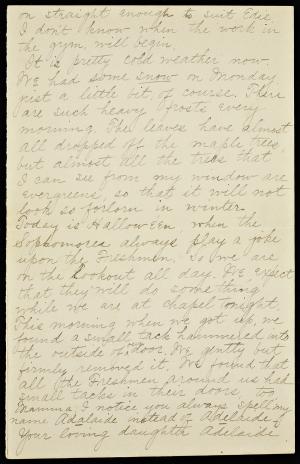 on straight enough to suit Edie.
I don't know when the work in
the gym, will begin.
It is pretty cold weather now.
We had some snow on Monday
just a little bit, of course. There
are such heavy frosts every
morning. The leaves have almost
all dropped off the maple trees,
but almost all the trees that
I can see from my window are
evergreens, so that it will not
look so forlorn in winter.
Today is Hallow Een, when the
Sophomores always play a joke
upon the Freshmen. So we are
on the lookout all day. We expect
that they will do something
while we are at chapel tonight.
This morning when we got up, we
found a small tack hammered into
the outside of door. We gently but
firmly removed it. We found that
all the Freshmen around us had
small tacks in their doors, too
Mamma I notice you always spell my
name Adalaide instead of Adelaide.
Your loving daughter Adelaide